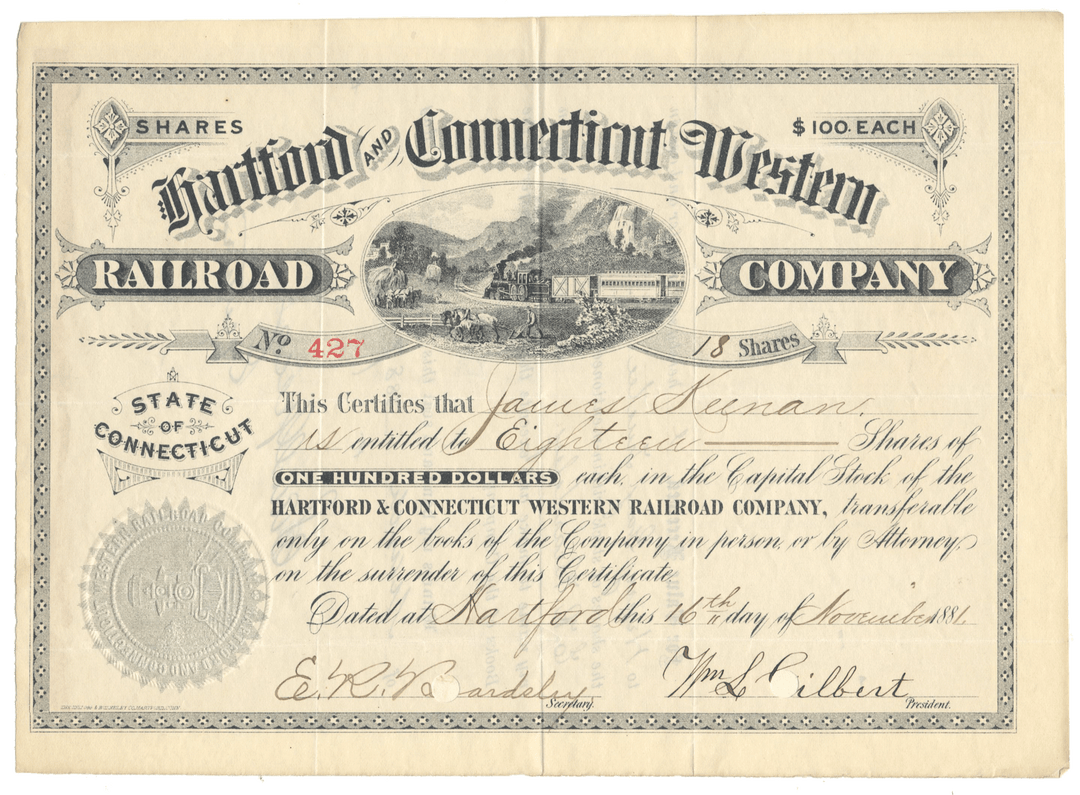 SHARES
$100. EACH
Hartford AND Connecticut Western
RAILROAD COMPANY
No 427
18 Shares
STATE
OF
CONNECTICUT
This Certifies that James Keenan.
is entitled to Eighteen Shares of
ONE HUNDRED DOLLARS each, in the Capital Stock of the
HARTFORD & CONNECTICUT WESTERN RAILROAD COMPANY, transferable
only on the books of the Company in person, or by Attorney,
on the surrender of this Certificate.
Dated at Hartford this 16th day of November 1881.
E. R. Beardsley
Secretary.
Wm L Gilbert
President.